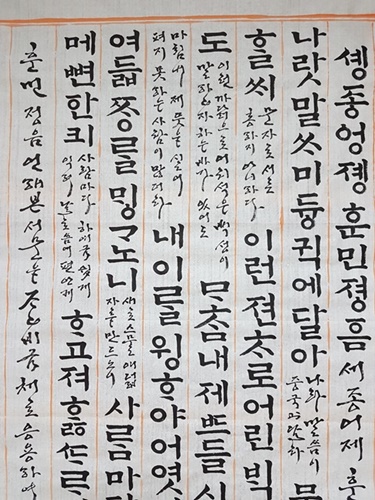 솅종엉졩 훈민졍ᅙᅳᆷ 세종어제 훈
나랏말ᄊᆞ미 듕귁에달아 나라 말씀이 중국과 달라
ᄒᆞᆯᄊᆡ 문자로 서로 통하지 아니하다 이런 젼ᄎᆞ로 어린 ᄇᆡᆨ
도 이런 까닭으로 어리석은 백성이 말하고자 하는 바가 있어도 ᄆᆞᄎᆞᆷ내 제 ᄠᅳ들 시
마침내 제 뜻을 실어 펴지 못하는 사람이 많더라 내 이ᄅᆞᆯ 윙ᄒᆞ야 어엿
여듧 ᄍᆞᆼᄅᆞᆯ ᄆᆡᇰᄀᆞ노니 새로 스물여덟 자를 만드노니 사ᄅᆞᆷ마
메 뼌한킈 사람마다 하여금 쉽게 익혀 날로 씀에 편안케 ᄒᆞ고져 ᄒᆞᇙ
훈민정음 언해본 서문을 응용하여